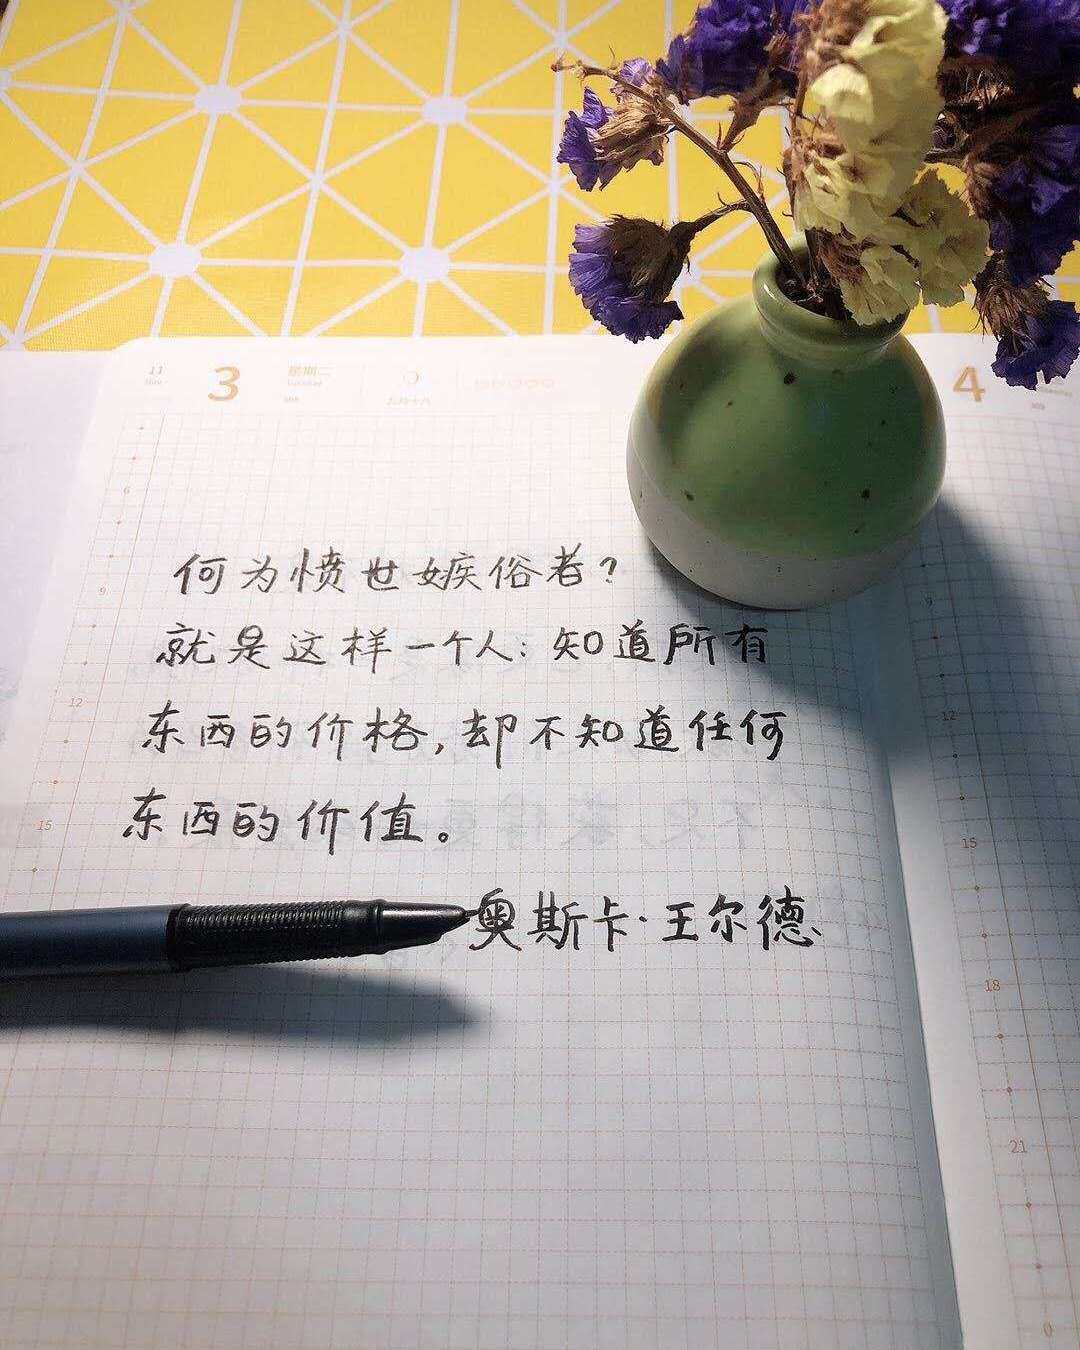 11
3
星期二
九月十八
4
何为愤世嫉俗者？
就是这样一个人：知道所有
东西的价格，却不知道任何
东西的价值。
奥斯卡·王尔德
6
9
12
15
9
12
15
18
21
0